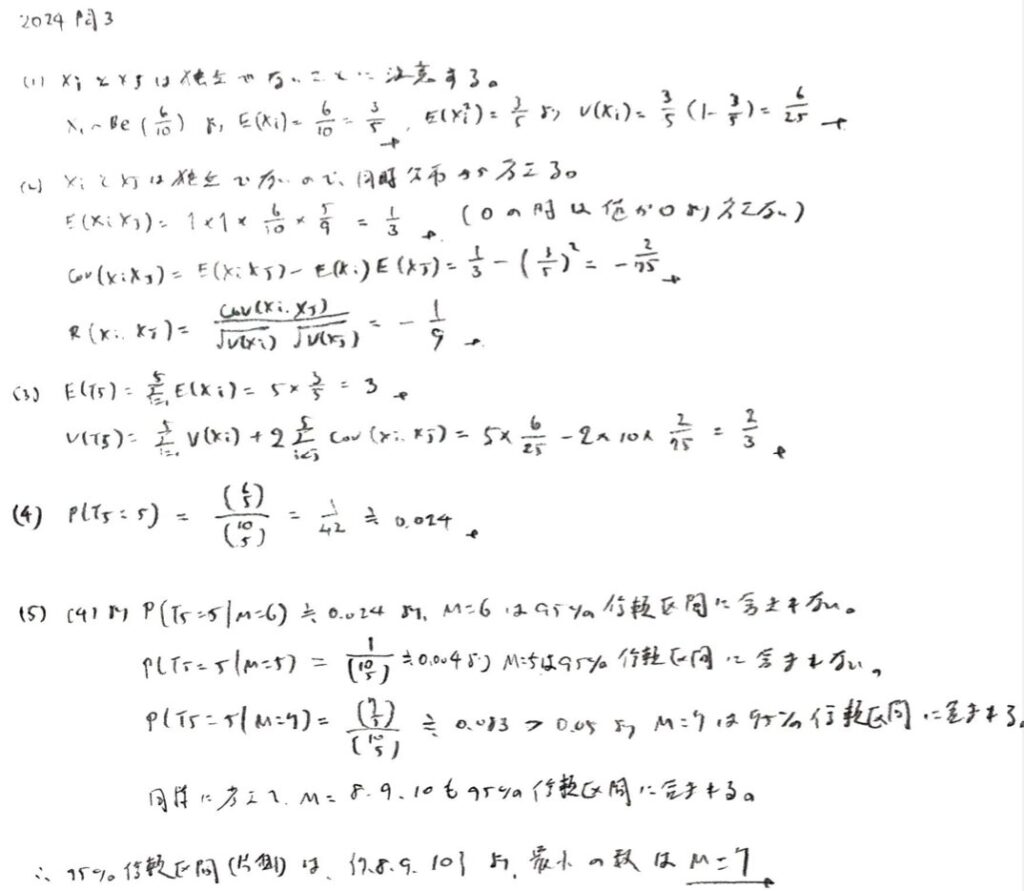 2024 問3
(1) XiとXjは独立でないことに注意する。
Xi~Be(6/10)より, E(Xi)=6/10=3/5, E(Xi²)=3/5より V(Xi)=3/5(1-3/5)=6/25
(2) XiとXjは独立でないので、同時分布から考える。
E(XiXj)=1×1×6/10×5/9=1/3 (0の時は値が0より考えない)
Cov(Xi,Xj)=E(XiXj)-E(Xi)E(Xj)=1/3-(3/5)²=-2/75
R(Xi,Xj)=Cov(Xi,Xj)/(√V(Xi)√V(Xj))=-1/9
(3) E(T5)=Σ_{i=1}^{5}E(Xi)=5×3/5=3
V(T5)=Σ_{i=1}^{5}V(Xi)+2Σ_{i<j}^{5}Cov(Xi,Xj)=5×6/25-2×10×2/75=2/3
(4) P(T5=5)=(6 5)/(10 5)=1/42≒0.024
(5) (4)より P(T5=5|M=6)≒0.024より, M=6は95%信頼区間に含まれない。
P(T5=5|M=5)=1/(10 5)≒0.004より M=5は95%信頼区間に含まれない。
P(T5=5|M=7)=(7 5)/(10 5)≒0.083>0.05より M=7は95%信頼区間に含まれる。
同様に考えて、M=8.9.10も95%信頼区間に含まれる。
∴95%信頼区間(片側)は、{7.8.9.10}より、最小の数はM=7